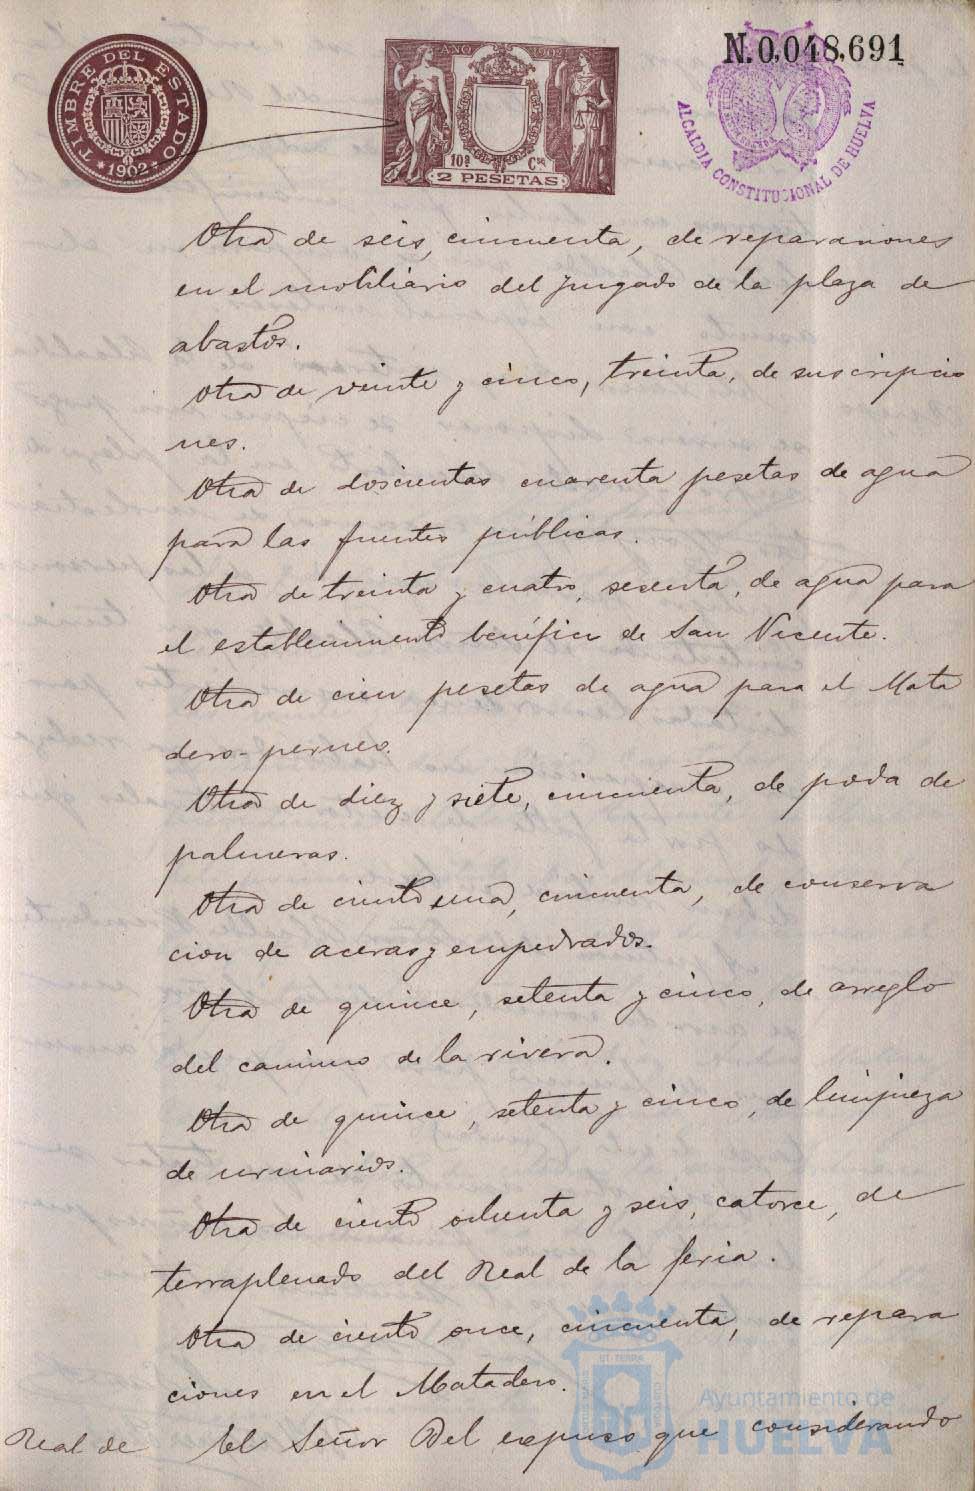 TIMBRE DEL ESTADO
1902
AÑO 1902
10ª Cse
2 PESETAS
N. 0,048,691
ALCALDIA CONSTITUCIONAL DE HUELVA
Otra de seis, cincuenta, de reparaciones
en el mobiliario del juzgado de la plaza de
abastos.
Otra de veinte y cinco, treinta, de suscripcio
nes.
Otra de doscientas cuarenta pesetas de agua
para las fuentes públicas.
Otra de treinta y cuatro, sesenta, de agua para
el establecimiento benéfico de San Vicente.
Otra de cien pesetas de agua para el Mata
dero-perneo.
Otra de diez y siete, cincuenta, de poda de
palmeras.
Otra de ciento una, cincuenta, de conserva
cion de aceras y empedrados.
Otra de quince, setenta y cinco, de arreglo
del camino de la rivera.
Otra de quince, setenta y cinco, de limpieza
de urinarios.
Otra de ciento ochenta y seis, catorce, de
terraplenado del Real de la feria.
Otra de ciento once, cincuenta, de repara
ciones en el Matadero.
Real de
El Señor Del expuso que considerando
Ayuntamiento de
HUELVA